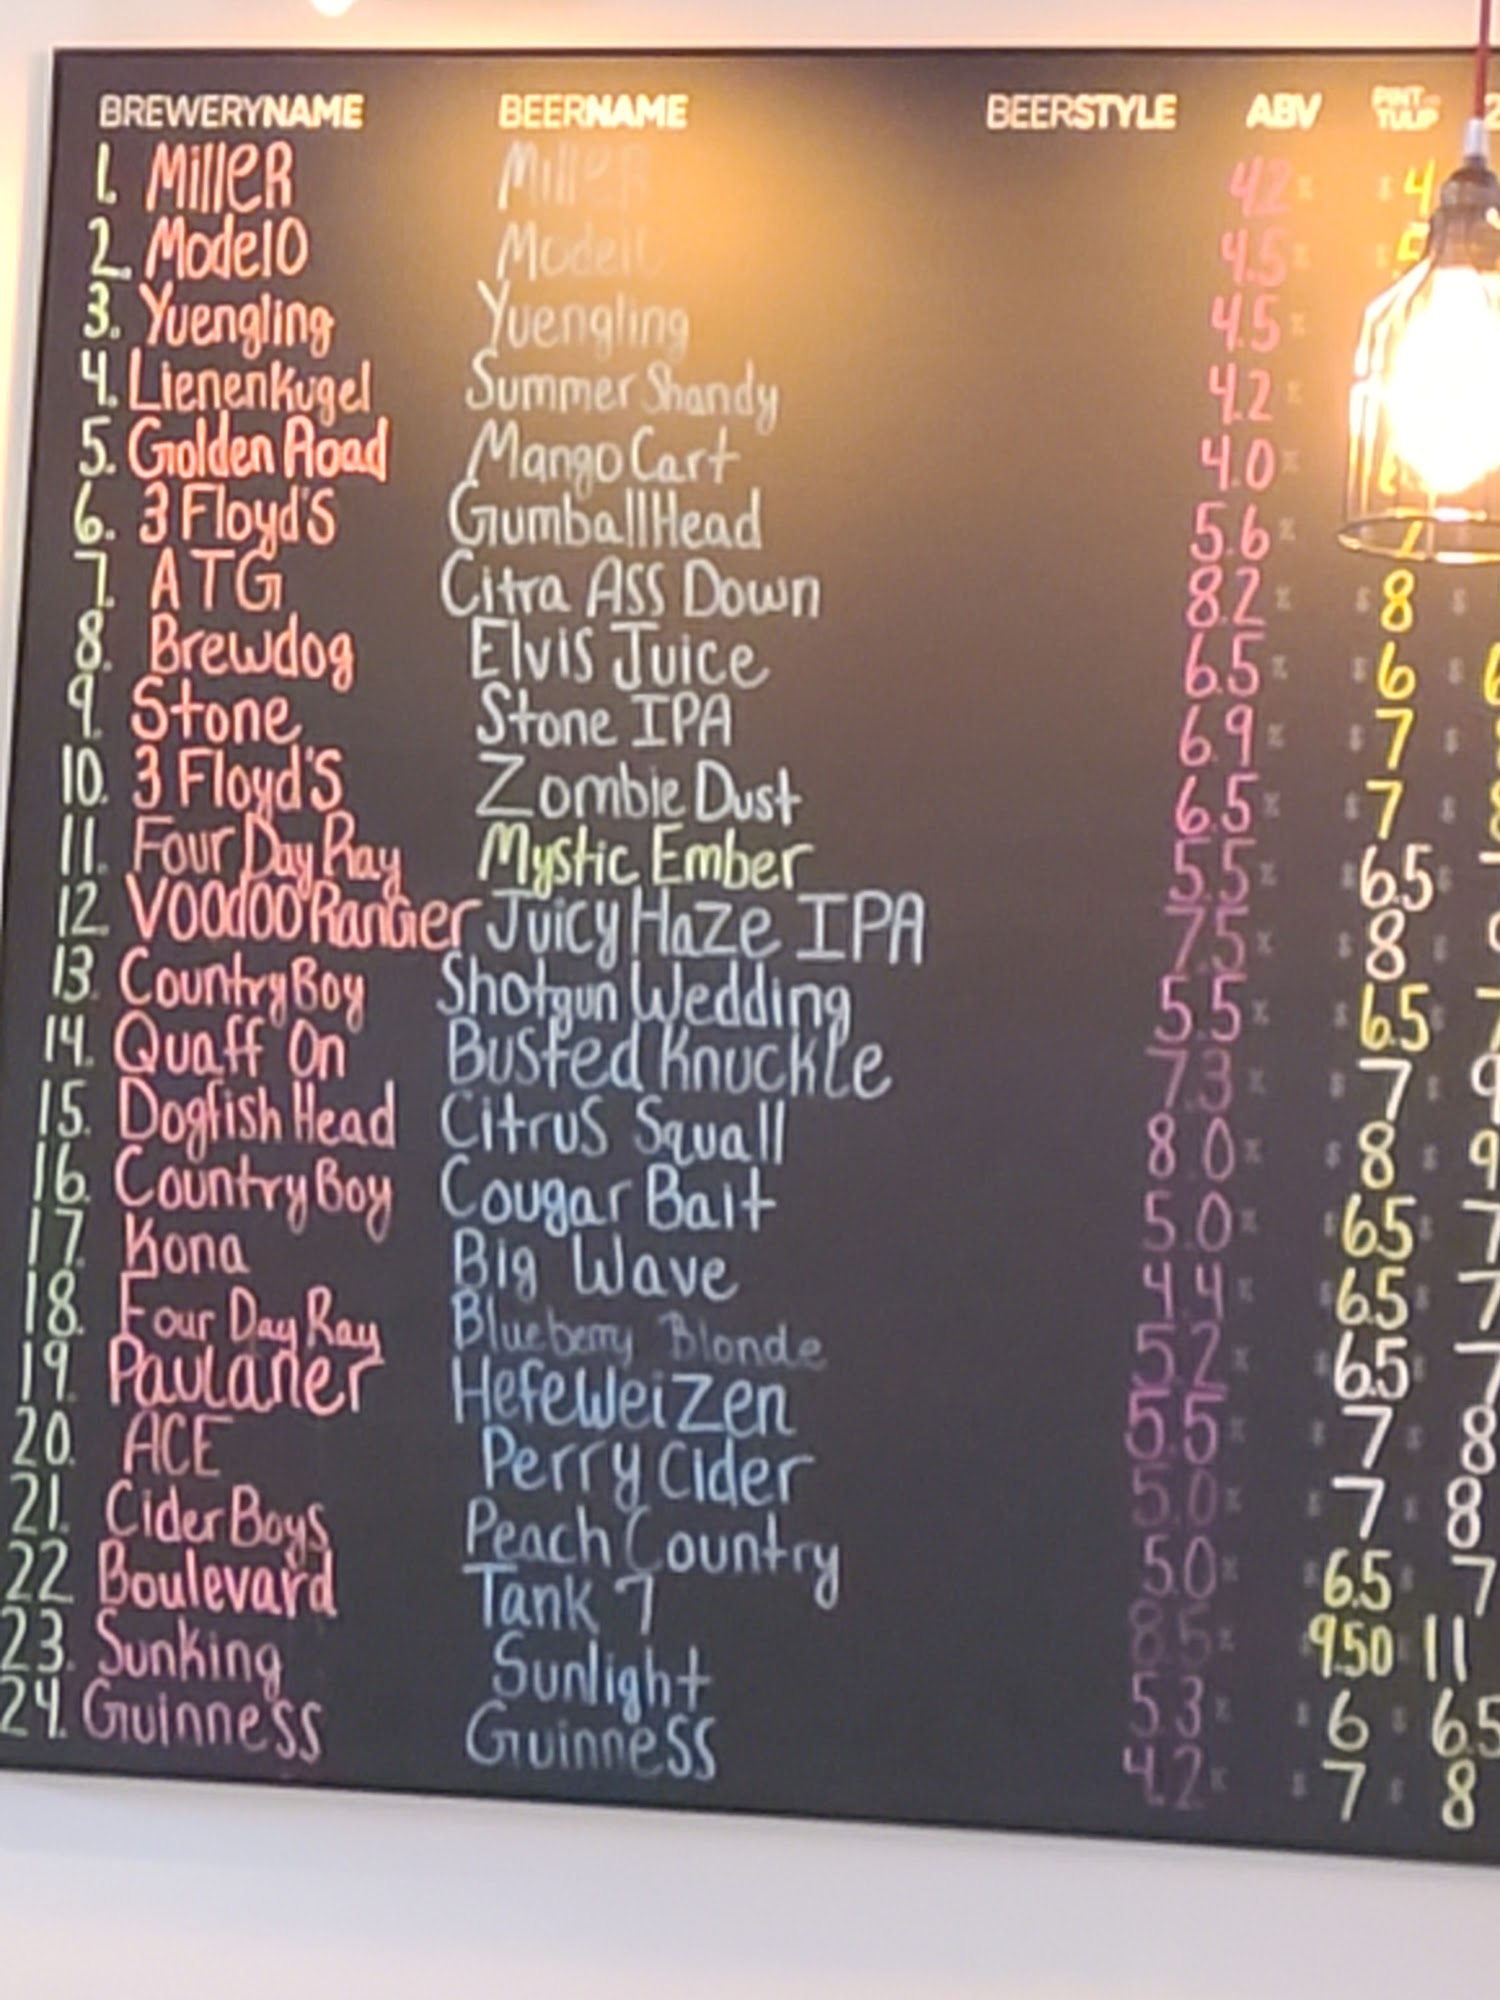 BREWERYNAME BEERNAME BEERSTYLE ABV PINT TULIP 2
1. MilleR MilleR 4.2% $4
2. Modelo Modelo 4.5% $5
3. Yuengling Yuengling 4.5%
4. LienenKugel Summer Shandy 4.2%
5. Golden Road Mango Cart 4.0%
6. 3 Floyd'S GumballHead 5.6% 7
7. ATG Citra ASS Down 8.2% $8 $
8. Brewdog Elvis Juice 6.5% $6 $6
9. Stone Stone IPA 6.9% $7 $
10. 3 Floyd'S Zombie Dust 6.5% $7 $8
11. Four Day Ray Mystic Ember 5.5% $6.5 7
12. Voodoo Ranger Juicy Haze IPA 7.5% $8 $9
13. Country Boy Shotgun Wedding 5.5% $6.5 7
14. Quaff On Busted Knuckle 7.3% $7 $9
15. Dogfish Head Citrus Squall 8.0% $8 $9
16. Country Boy Cougar Bait 5.0% $6.5 7
17. Kona Big Wave 4.4% $6.5 7
18. Four Day Ray Blueberry Blonde 5.2% $6.5 7
19. Paulaner Hefeweizen 5.5% $7 $8
20. ACE Perry Cider 5.0% $7 $8
21. Cider Boys Peach Country 5.0% $6.5 7
22 Boulevard Tank 7 8.5% $9.50 11
23. Sunking Sunlight 5.3% $6 $6.5
24. Guinness Guinness 4.2% $7 $8